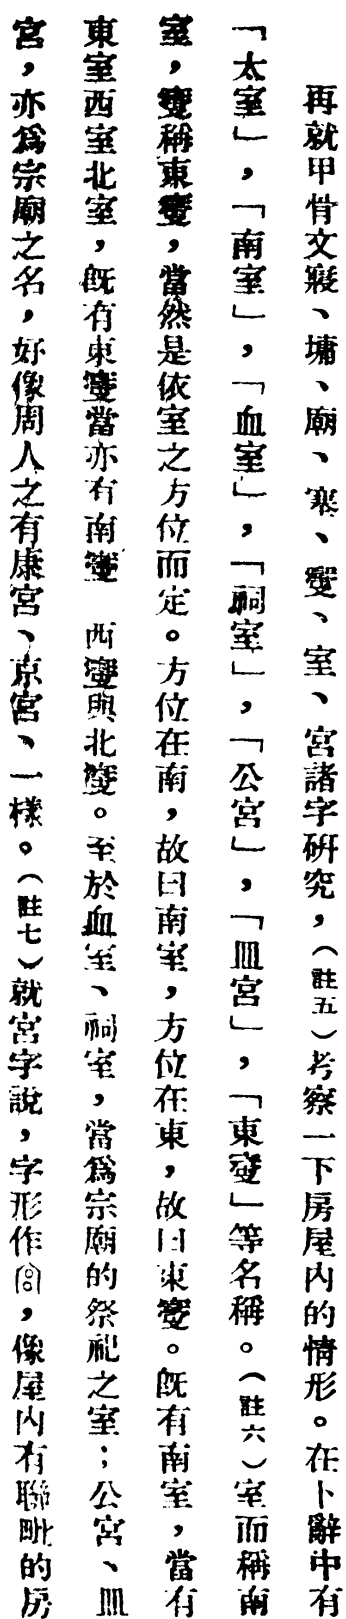 再就甲骨文寢、墉、廟、寒、寷、室、宮諸字研究，（註五）考察一下房屋內的情形。在卜辭中有
「太室」，「南室」，「血室」，「祠室」，「公宮」，「皿宮」，「東寷」等名稱。（註六）室而稱南
室，寷稱東寷，當然是依室之方位而定。方位在南，故曰南室，方位在東，故曰東寷。既有南室，當有
東室西室北室，既有東寷當亦有南寷　西寷與北寷。至於血室、祠室，當爲宗廟的祭祀之室；公宮、皿
宮，亦爲宗廟之名，好像周人之有康宮、京宮、一樣。（註七）就宮字說，字形作，像屋內有聯毗的房